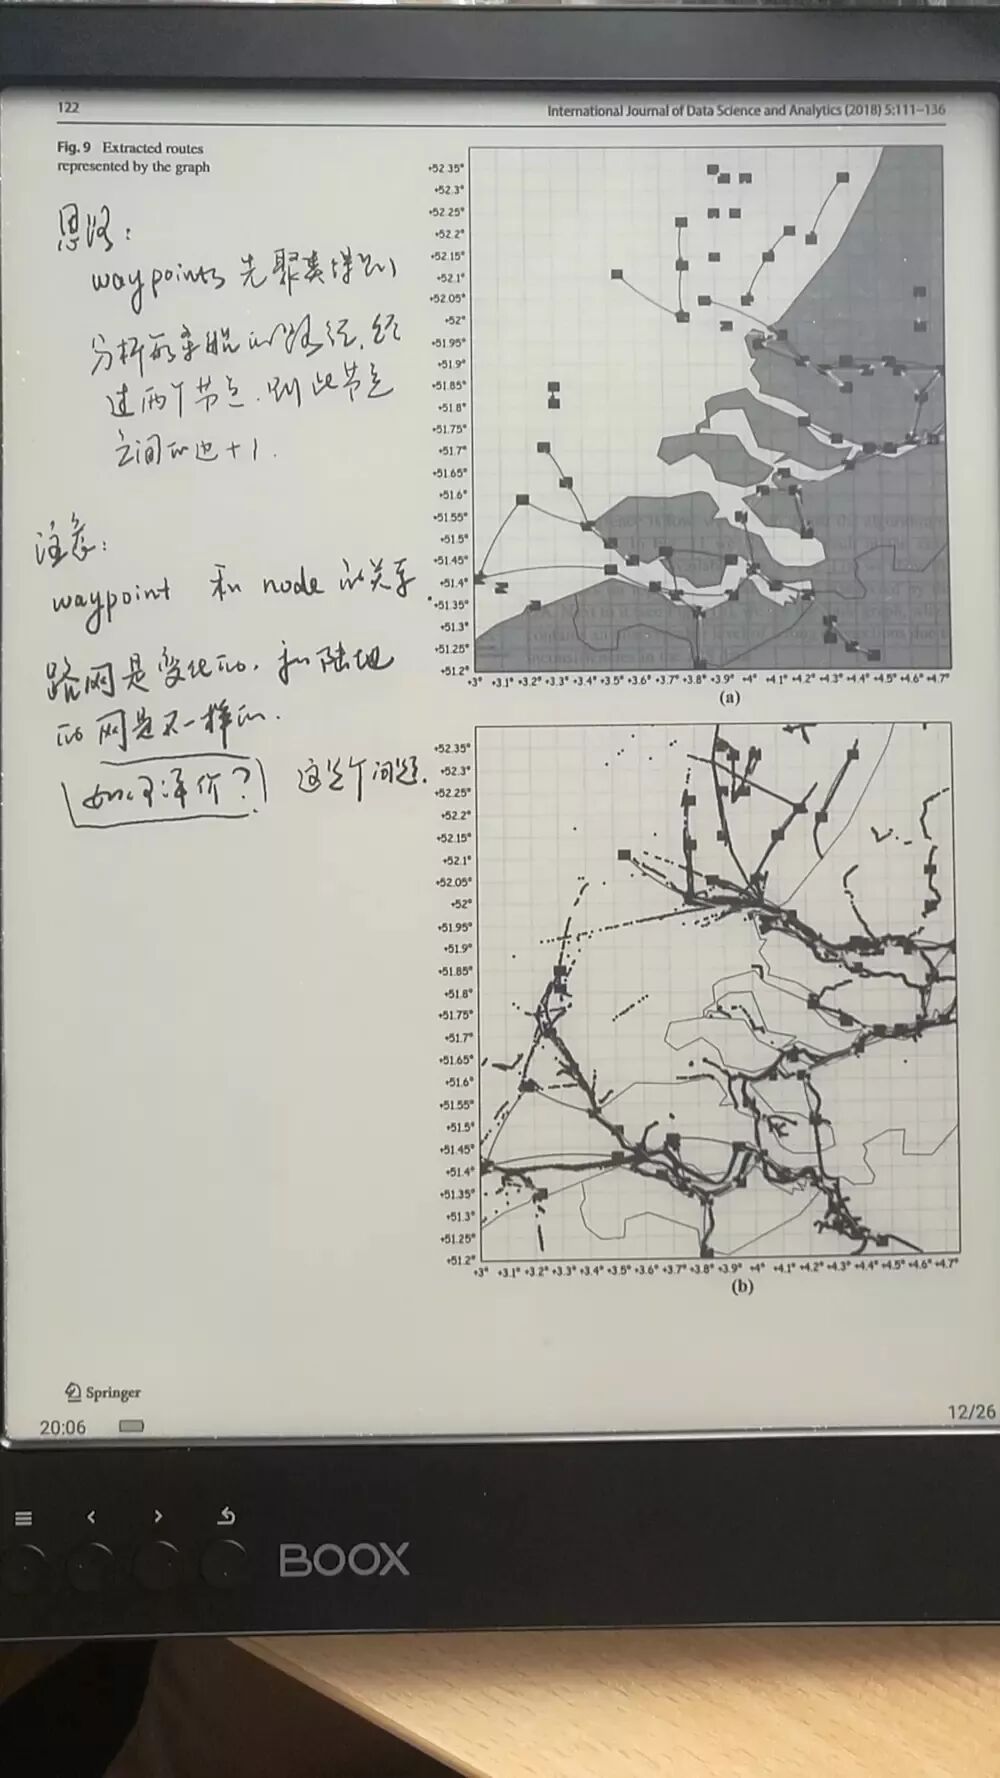 122
International Journal of Data Science and Analytics (2018) 5:111–136
Fig. 9 Extracted routes
represented by the graph
思路:
waypoints 先聚类得到
分析所乘船的路径,经
过两个节点,则此节点
之间的边+1.
注意:
waypoint 和 node 的关系.
路网是变化的,和陆地
的网是不一样的.
如何评价? 这是个问题.
+52.35°
+52.3°
+52.25°
+52.2°
+52.15°
+52.1°
+52.05°
+52°
+51.95°
+51.9°
+51.85°
+51.8°
+51.75°
+51.7°
+51.65°
+51.6°
+51.55°
+51.5°
+51.45°
+51.4°
+51.35°
+51.3°
+51.25°
+51.2°
+3° +3.1° +3.2° +3.3° +3.4° +3.5° +3.6° +3.7° +3.8° +3.9° +4° +4.1° +4.2° +4.3° +4.4° +4.5° +4.6° +4.7°
(a)
+52.35°
+52.3°
+52.25°
+52.2°
+52.15°
+52.1°
+52.05°
+52°
+51.95°
+51.9°
+51.85°
+51.8°
+51.75°
+51.7°
+51.65°
+51.6°
+51.55°
+51.5°
+51.45°
+51.4°
+51.35°
+51.3°
+51.25°
+51.2°
+3° +3.1° +3.2° +3.3° +3.4° +3.5° +3.6° +3.7° +3.8° +3.9° +4° +4.1° +4.2° +4.3° +4.4° +4.5° +4.6° +4.7°
(b)
Springer
20:06
12/26
BOOX